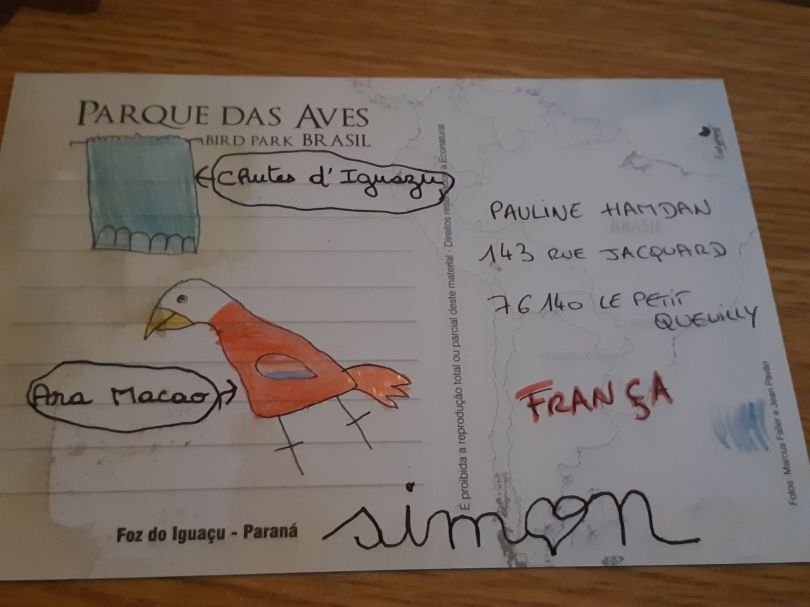 PARQUE DAS AVES
BIRD PARK BRASIL
Chutes d'Iguazu
Ara Macao
Foz do Iguaçu - Paraná
simon
É proibida a reprodução total ou parcial deste material - Direitos
a Econatural
PAULINE HAMDAN
BRASIL
143 RUE JACQUARD
76140 LE PETIT
QUEVILLY
FRANÇA
Fotos: Marcus Faller e Jean Pavão